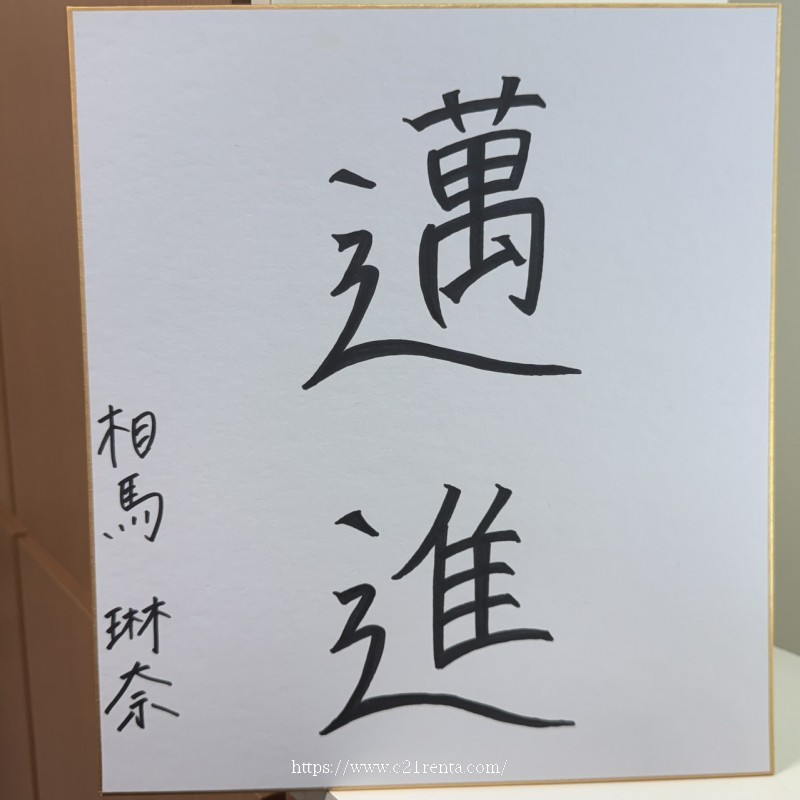 邁進
相馬 琳奈
https://www.c21renta.com/